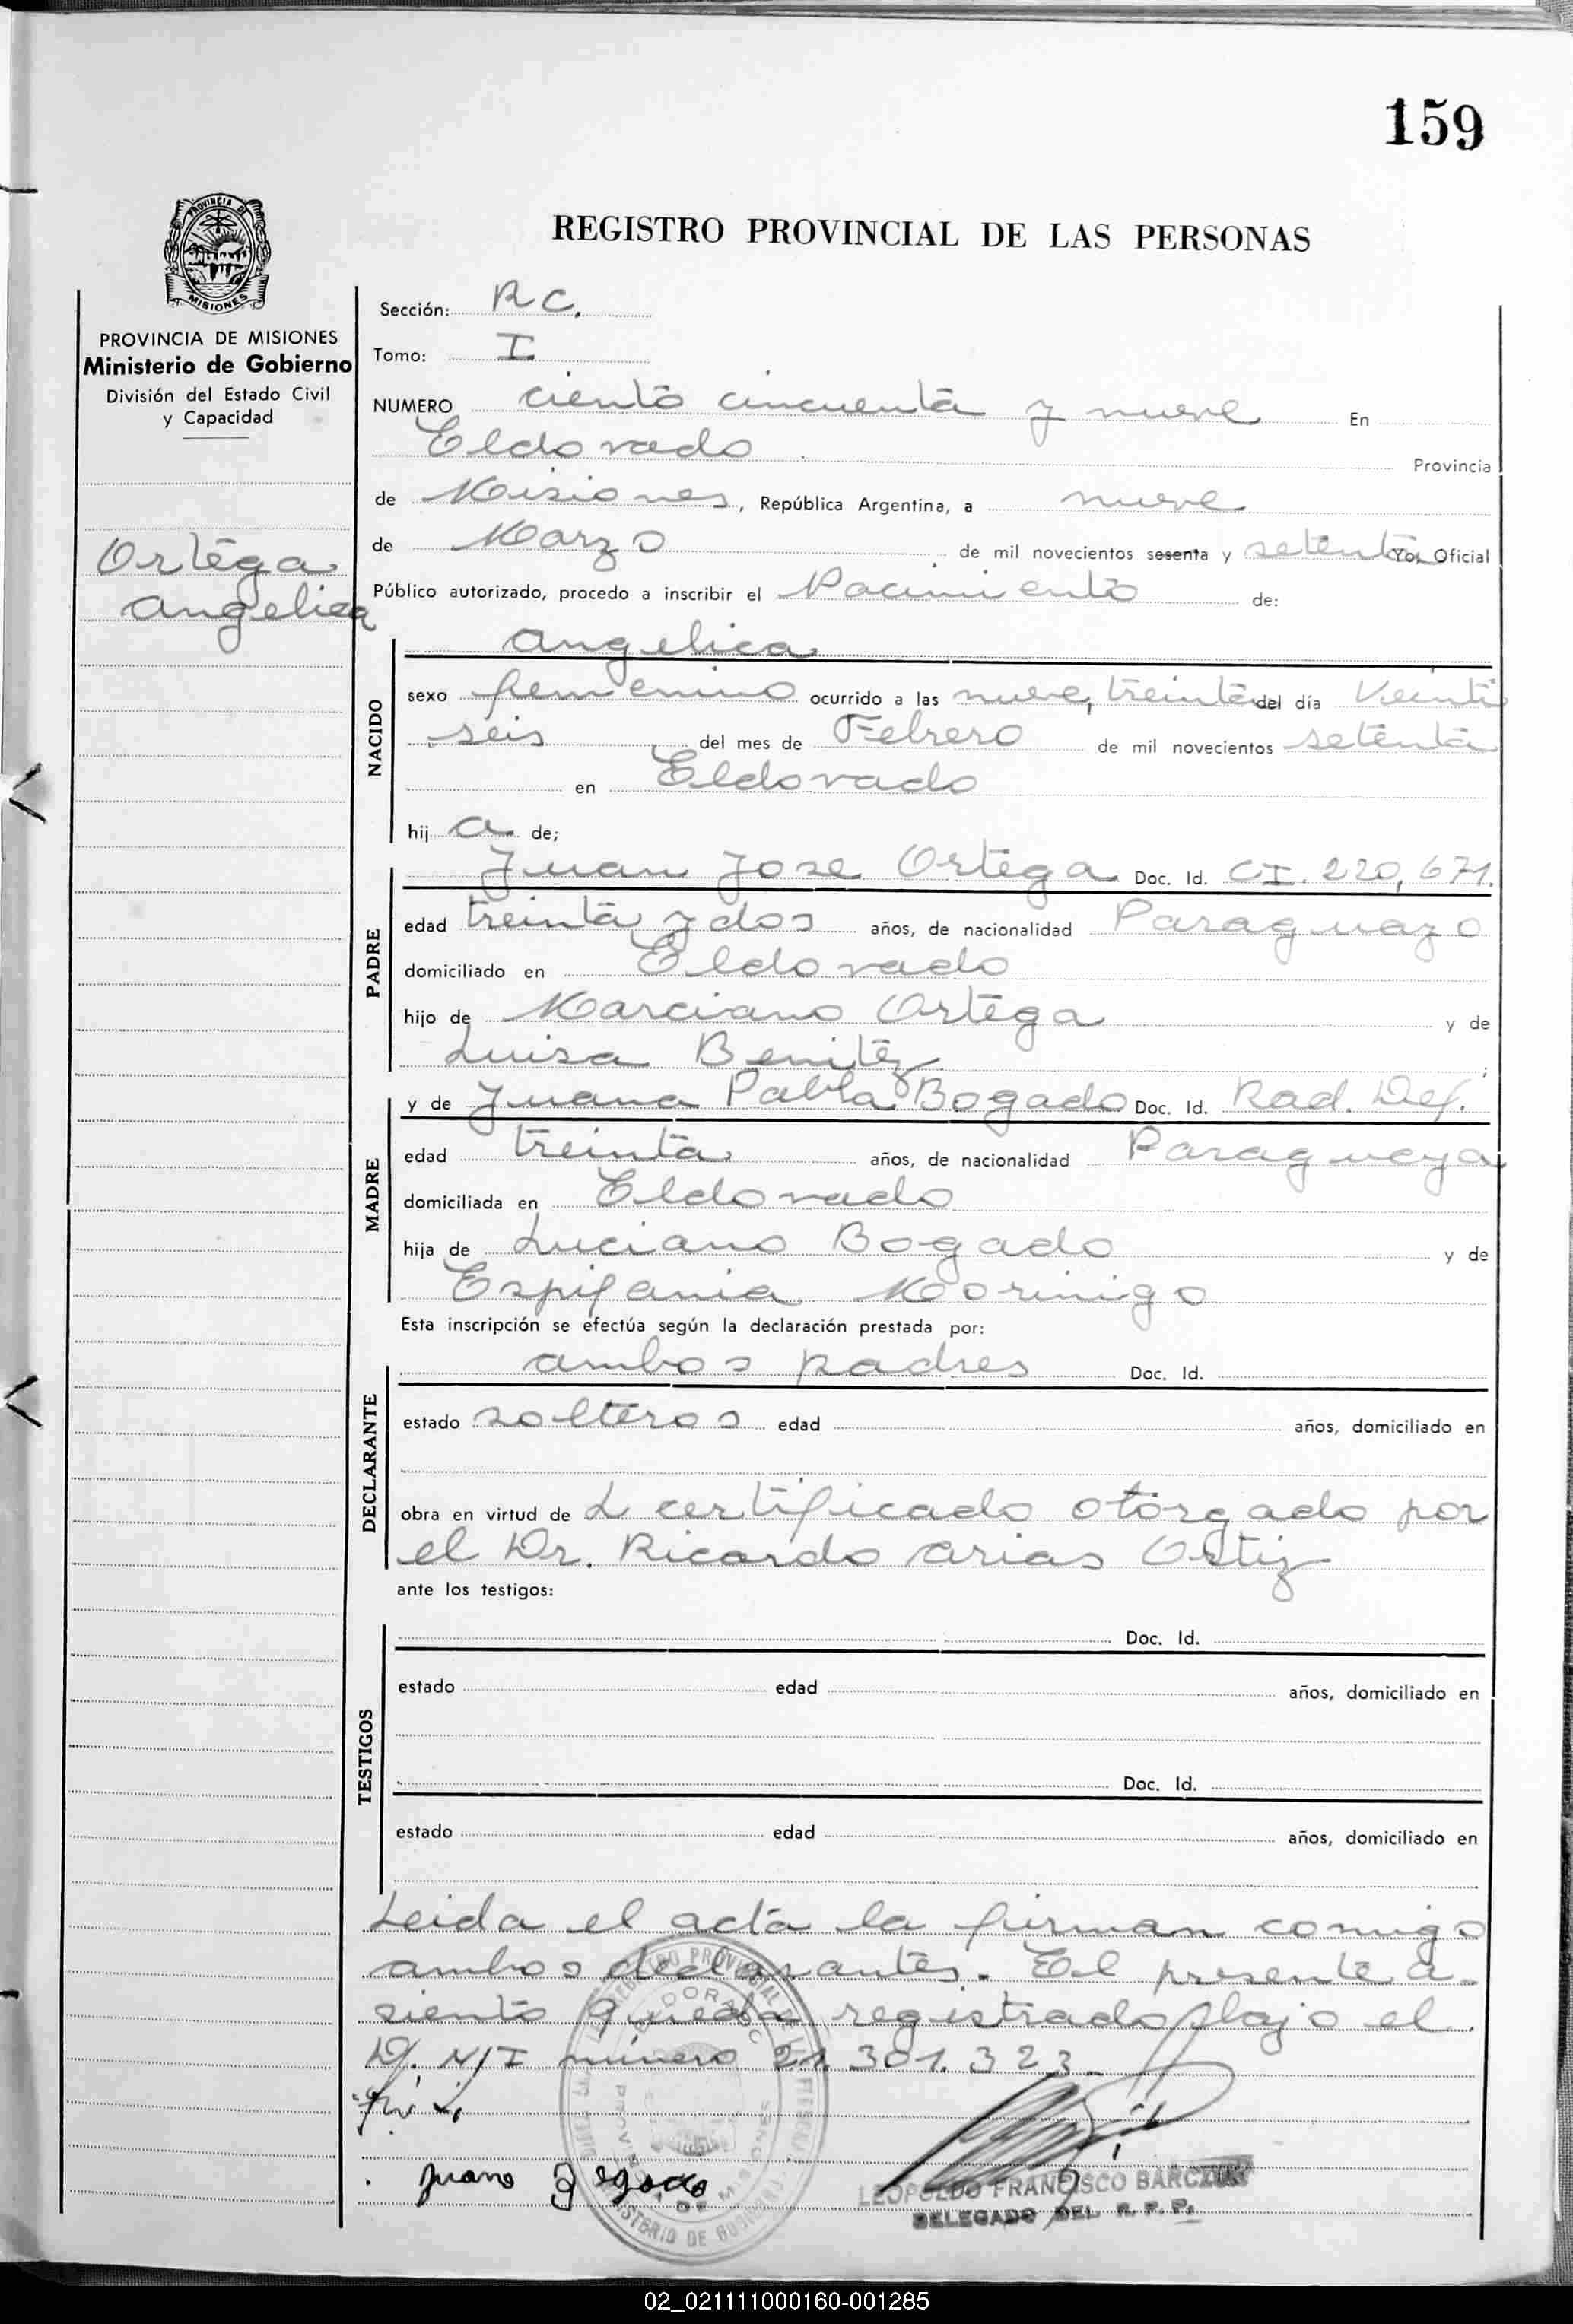 159
REGISTRO PROVINCIAL DE LAS PERSONAS
PROVINCIA DE
MISIONES
PROVINCIA DE MISIONES
Ministerio de Gobierno
División del Estado Civil
y Capacidad
Ortega
Angelica
Sección: R C.
Tomo: I
NUMERO ciento cincuenta y nueve En
Eldorado Provincia
de Misiones, República Argentina, a nueve
de Marzo de mil novecientos sesenta y setenta Yo, Oficial
Público autorizado, procedo a inscribir el Nacimiento de:
Angelica
NACIDO
sexo femenino ocurrido a las nueve, treinta del día Veinti
seis del mes de Febrero de mil novecientos setenta
en Eldorado
hij a de;
Juan Jose Ortega Doc. Id. CI. 220,671.
PADRE
edad treinta y dos años, de nacionalidad Paraguayo
domiciliado en Eldorado
hijo de Marciano Ortega y de
Luisa Benitez ;
y de Juana Pabla Bogado Doc. Id. Rad. Def.
MADRE
edad treinta años, de nacionalidad Paragueya
domiciliada en Eldorado
hija de Luciano Bogado y de
Espifania Morinigo
Esta inscripción se efectúa según la declaración prestada por:
ambos padres Doc. Id.
DECLARANTE
estado solteros edad años, domiciliado en
obra en virtud de L certificado otorgado por
el Dr. Ricardo Arias Ortiz
ante los testigos:
Doc. Id.
TESTIGOS
estado edad años, domiciliado en
Doc. Id.
estado edad años, domiciliado en
Leida el acta la firman comigo
ambos declarantes. El presente a-
siento queda registrado bajo el
D. N/I número 21.301.323
Juana Bogado
LEOPOLDO FRANCISCO
DELEGADO DEL R. P. P.
02_021111000160-001285